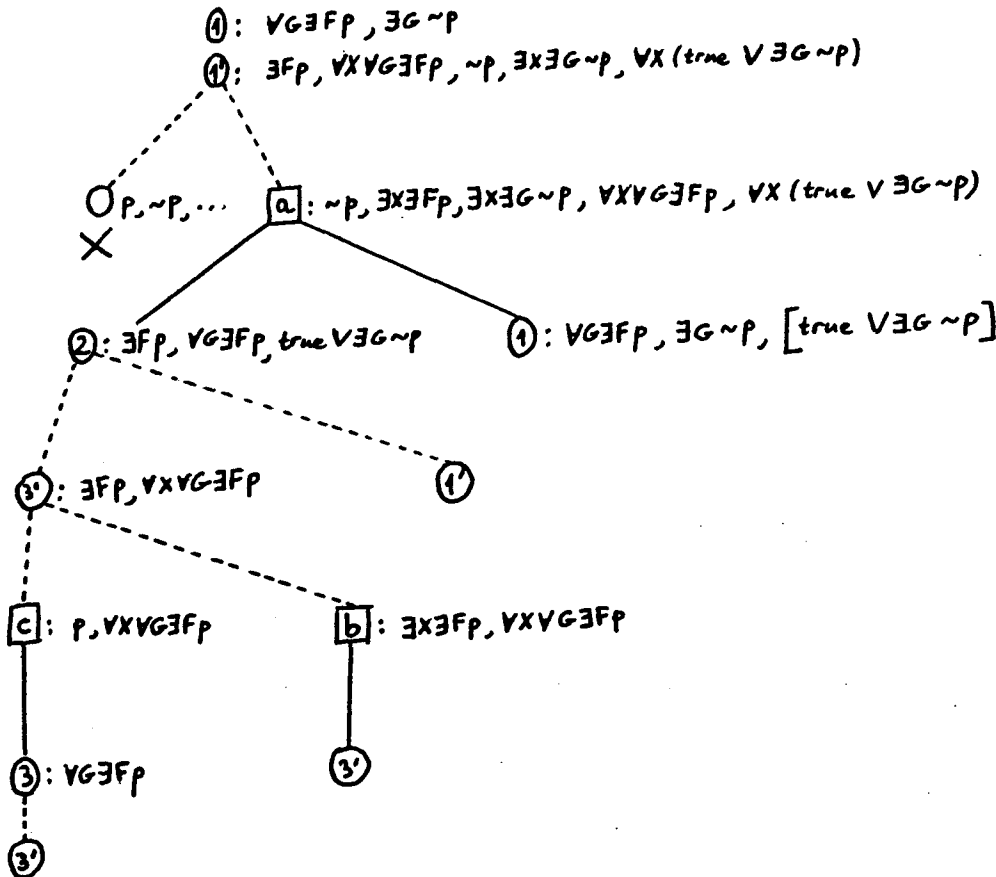 ①: ∀G∃Fp, ∃G~p
①': ∃Fp, ∀X∀G∃Fp, ~p, ∃X∃G~p, ∀X(true ∨ ∃G~p)
p,~p,...
a: ~p, ∃X∃Fp, ∃X∃G~p, ∀X∀G∃Fp, ∀X(true ∨ ∃G~p)
②: ∃Fp, ∀G∃Fp, true ∨ ∃G~p
①: ∀G∃Fp, ∃G~p, [true ∨ ∃G~p]
3': ∃Fp, ∀X∀G∃Fp
1'
c: p, ∀X∀G∃Fp
b: ∃X∃Fp, ∀X∀G∃Fp
③: ∀G∃Fp
3'
3'